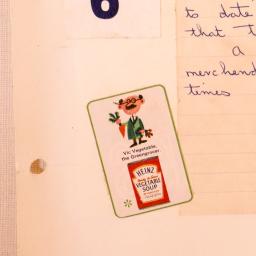 6
to date
that t
a
merchend
times
Vic Vegetable,
the Greengrocer
HEINZ
VEGETABLE
SOUP